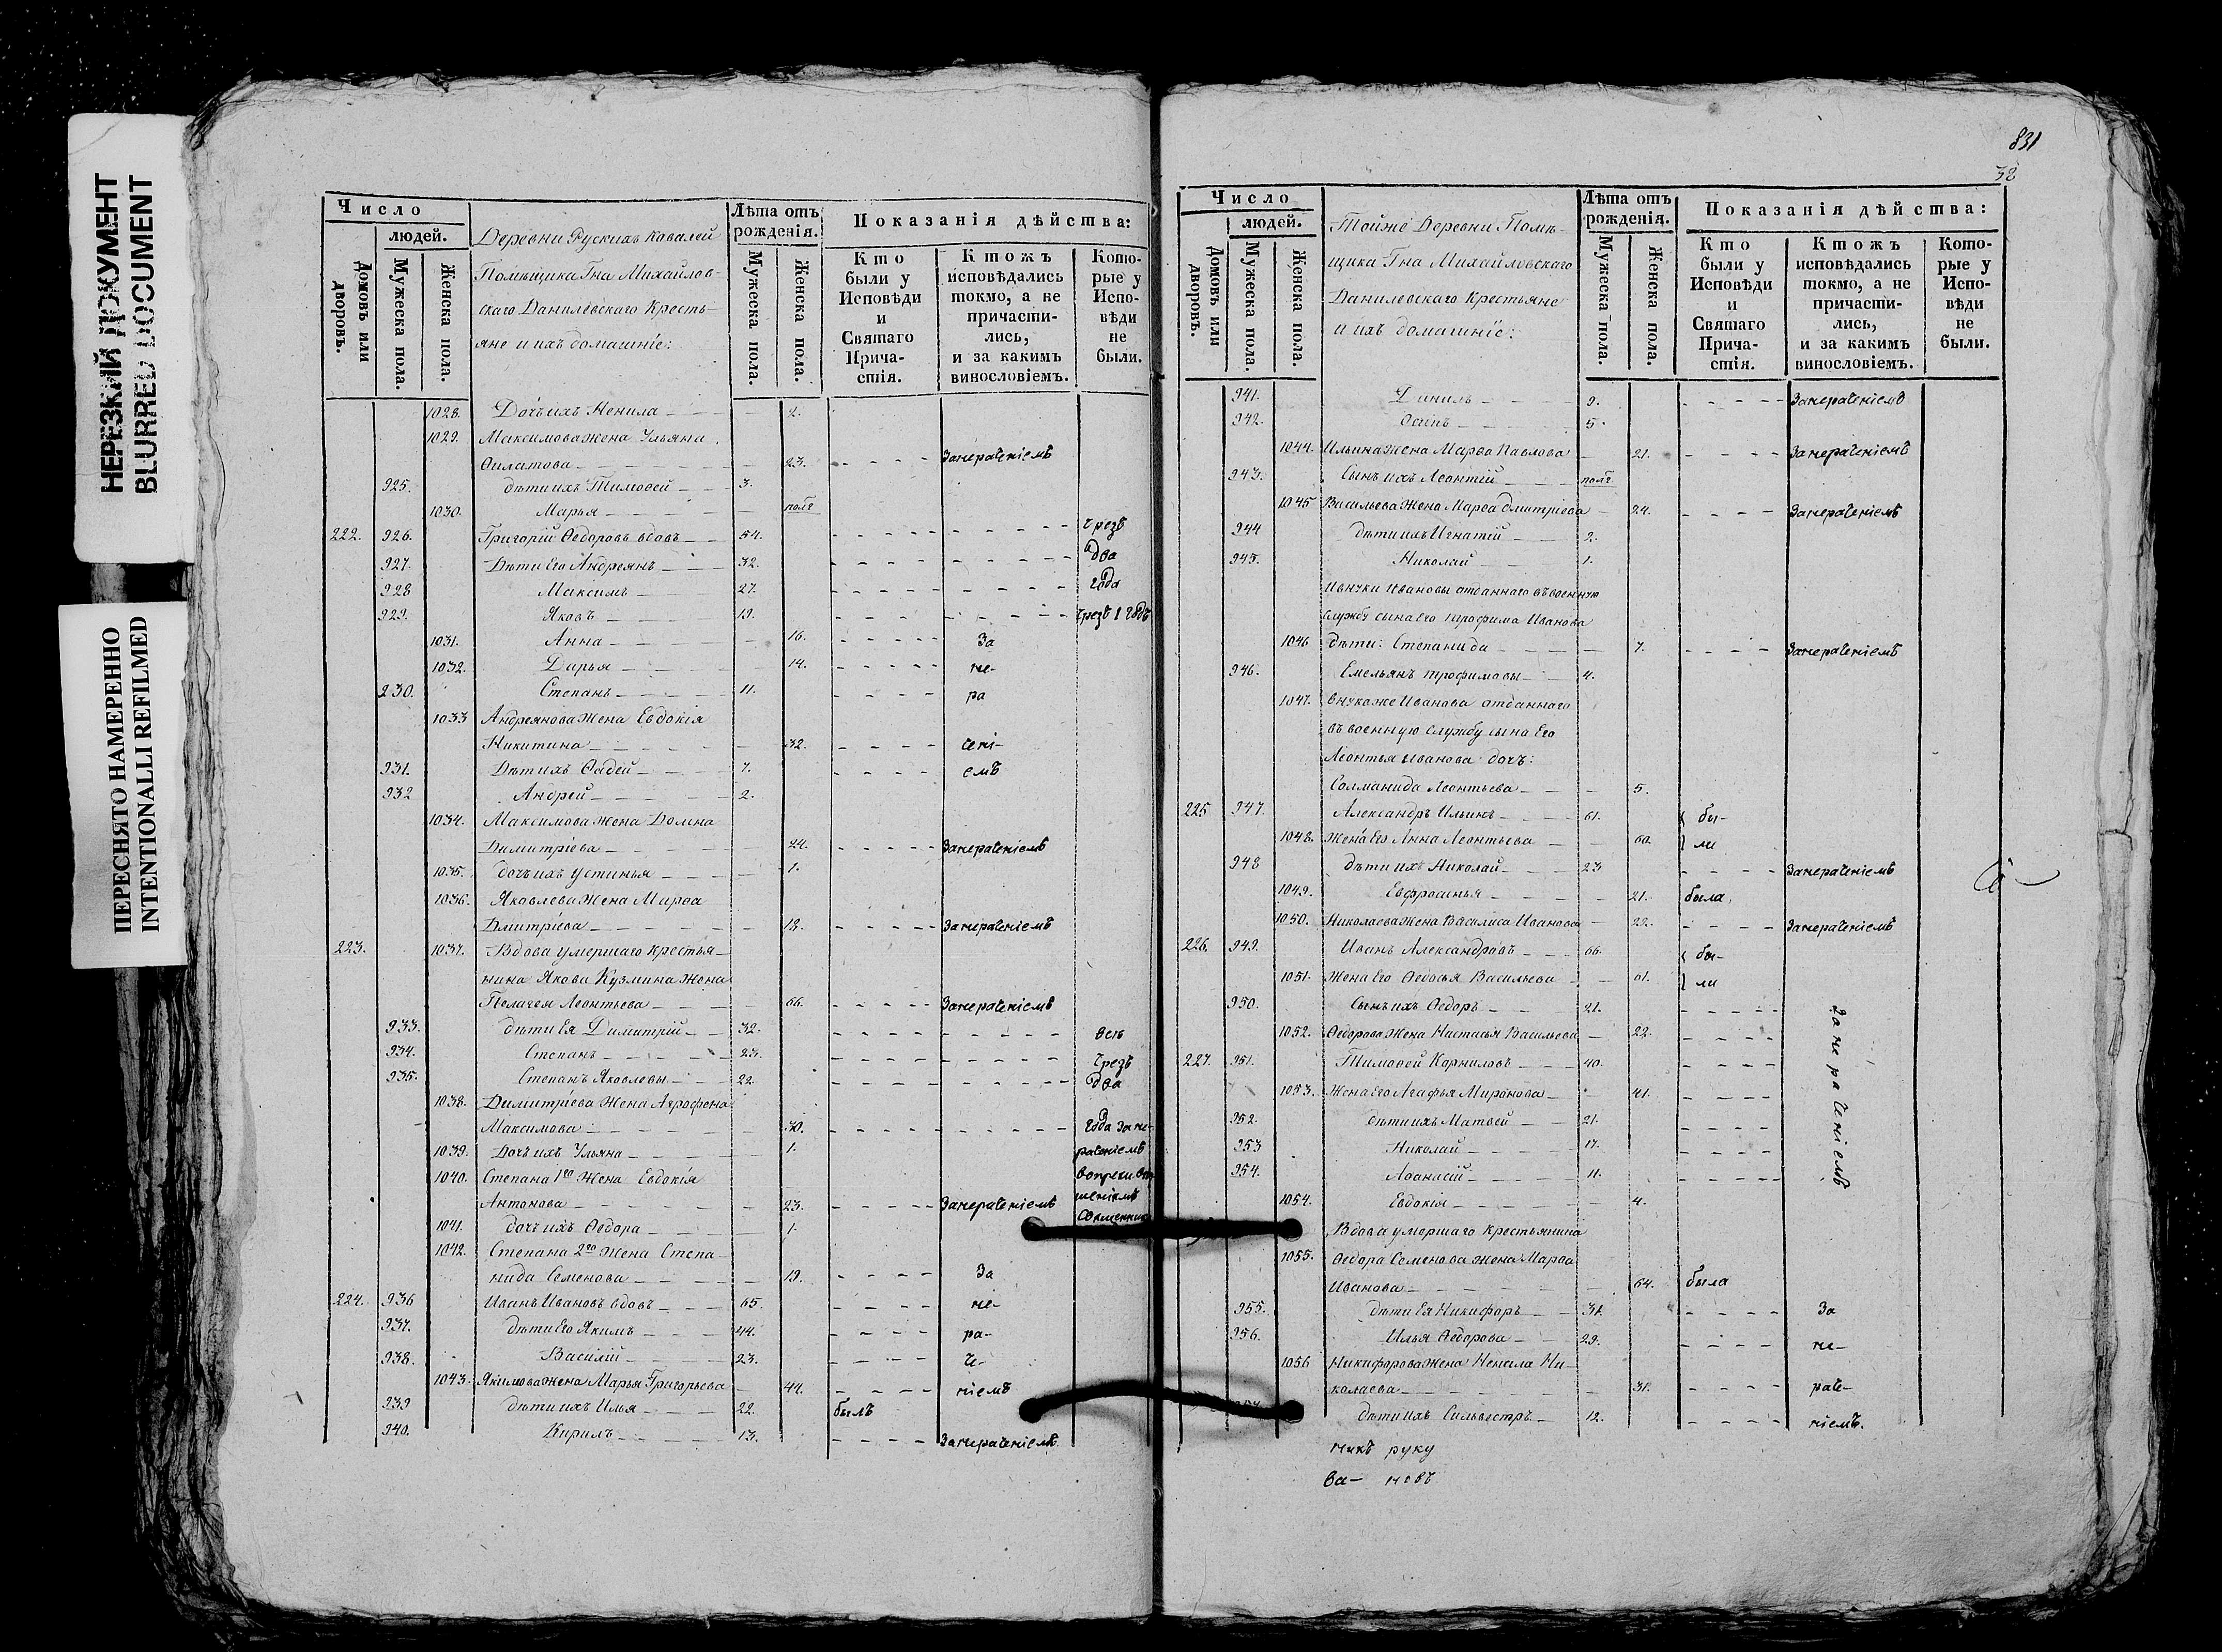 НЕРЕЗКИЙ ДОКУМЕНТ
BLURRED DOCUMENT
ПЕРЕСНЯТО НАМЕРЕННО
INTENTIONALLI REFILMED
Число
людей.
Домовъ или дворовъ.
Мужеска пола.
Женска пола.
Деревни Рускихъ Ковалей
Помѣщика Гна Михайлов-
скаго Данилевскаго Кресть-
яне и ихъ домашніе:
Лѣта отъ рожденія.
Мужеска пола.
Женска пола.
Показанія дѣйства:
Кто были у Исповѣди и Святаго Прича-стія.
Ктожъ исповѣдались токмо, а не причасти-лись, и за какимъ винословіемъ.
Кото-рые у Испо-вѣди не были.
1028. Дочь ихъ Ненила 2.
1029. Максимова жена Ульяна
Филатова 23. Занераченіемъ
925. дѣти ихъ Тимофей 3.
1030. Марья полг
222. 926. Григорій Ѳедоровъ вдовъ 54. чрезъ
927. Дѣти Его Андреянъ 32. два
928 Максимъ 27. года
929. Яковъ 19. чрезъ 1 годъ
1031. Анна 16. За
1032. Дарья 14. не-
230. Степанъ 11. ра
1033 Андреянова Жена Евдокія
Никитина 32. чені-
931. Дѣти ихъ Фадей 7. емъ
932 Андрей 2.
1034. Максимова жена Домна
Димитріева 24. Занераченіемъ
1035. дочь ихъ Устинья 1.
1036. Яковлева Жена Марѳа
Дмитріева 18. Занераченіемъ
223. 1037. Вдова умершаго крестья-
нина Якова Кузмина Жена
Пелагея Леонтьева 66. Занераченіемъ
933. дѣти Ея Димитрій 32. всѣ
934. Степанъ 23. чрезъ
935. Степанъ Яковлевы 22. два
1038. Димитріева Жена Агрофена
Максимова 30. года за не-
1039. Дочь ихъ Ульяна 1. раченіемъ
1040. Степана 1го Жена Евдокія
Антонова 23. Занераченіемъ
1041. дочь ихъ Ѳедора 1.
1042. Степана 2го Жена Степа-
нида Семенова 19. За
224. 936 Иванъ Ивановъ вдовъ 65. не-
937. дѣти Его Якимъ 44. ра-
938. Василій 23. че-
1043. Якимова жена Марья Григорьева 44. ніемъ
939 дѣти ихъ Илья 22. былъ
940. Кирилъ 13. Занераченіемъ
831
32
Число
людей.
Домовъ или дворовъ.
Мужеска пола.
Женска пола.
Тойже Деревни Помѣ-
щика Гна Михайловскаго
Данилевскаго Крестьяне
и ихъ домашніе:
Лѣта отъ рожденія.
Мужеска пола.
Женска пола.
Показанія дѣйства:
Кто были у Исповѣди и Святаго Прича-стія.
Ктожъ исповѣдались токмо, а не причасти-лись, и за какимъ винословіемъ.
Кото-рые у Испо-вѣди не были.
941. Данилъ 9. Занераченіемъ
942. Осипъ 5.
1044. Ильина Жена Марѳа Павлова 21. Занераченіемъ
943. Сынъ ихъ Леонтій полг
1045 Васильева Жена Марѳа Дмитріева 24. Занераченіемъ
944 дѣти ихъ Игнатій 2.
945. Николай 1.
Ивнуки Ивановы отданнаго въ военную
службу сына Его Трофима Иванова
1046 дѣти: Степанида 7. Занераченіемъ
946. Емельянъ Трофимовы 4.
1047. внука же Иванова отданнаго
въ военную службу сына Его
Леонтья Иванова дочь:
Солманида Леонтьева 5.
225 947. Александръ Ильинъ 61. бы-
1048. Жена Его Анна Леонтьева 60. ли
948 дѣти ихъ Николай 23 Занераченіемъ
1049. Евфросинья 21. была
1050. Николаева Жена Василиса Иванова 22. Занераченіемъ
226. 949. Иванъ Александровъ 66. бы-
1051. Жена Его Ѳедосья Васильева 61. ли
950. Сынъ ихъ Ѳедоръ 21.
1052. Ѳедорова Жена Настасья Васильева 22.
Занераченіемъ
227. 951. Тимоѳей Корниловъ 40.
1053. Жена Его Агафья Миронова 41.
952. дѣти ихъ Матвей 21.
953 Николай 17.
954. Аѳанасій 11.
1054. Евдокія 4.
Вдова умершаго крестьянина
1055. Ѳедора Семенова жена Марѳа
Иванова 64. была
955. дѣти Ея Никифоръ 31. За
956. Илья Ѳедорова 29. не-
1056 Никифорова Жена Ненила Ни-
колаева 31. раче-
дѣти ихъ Сильвестръ 12. ніемъ.
никъ руку
ва- новъ